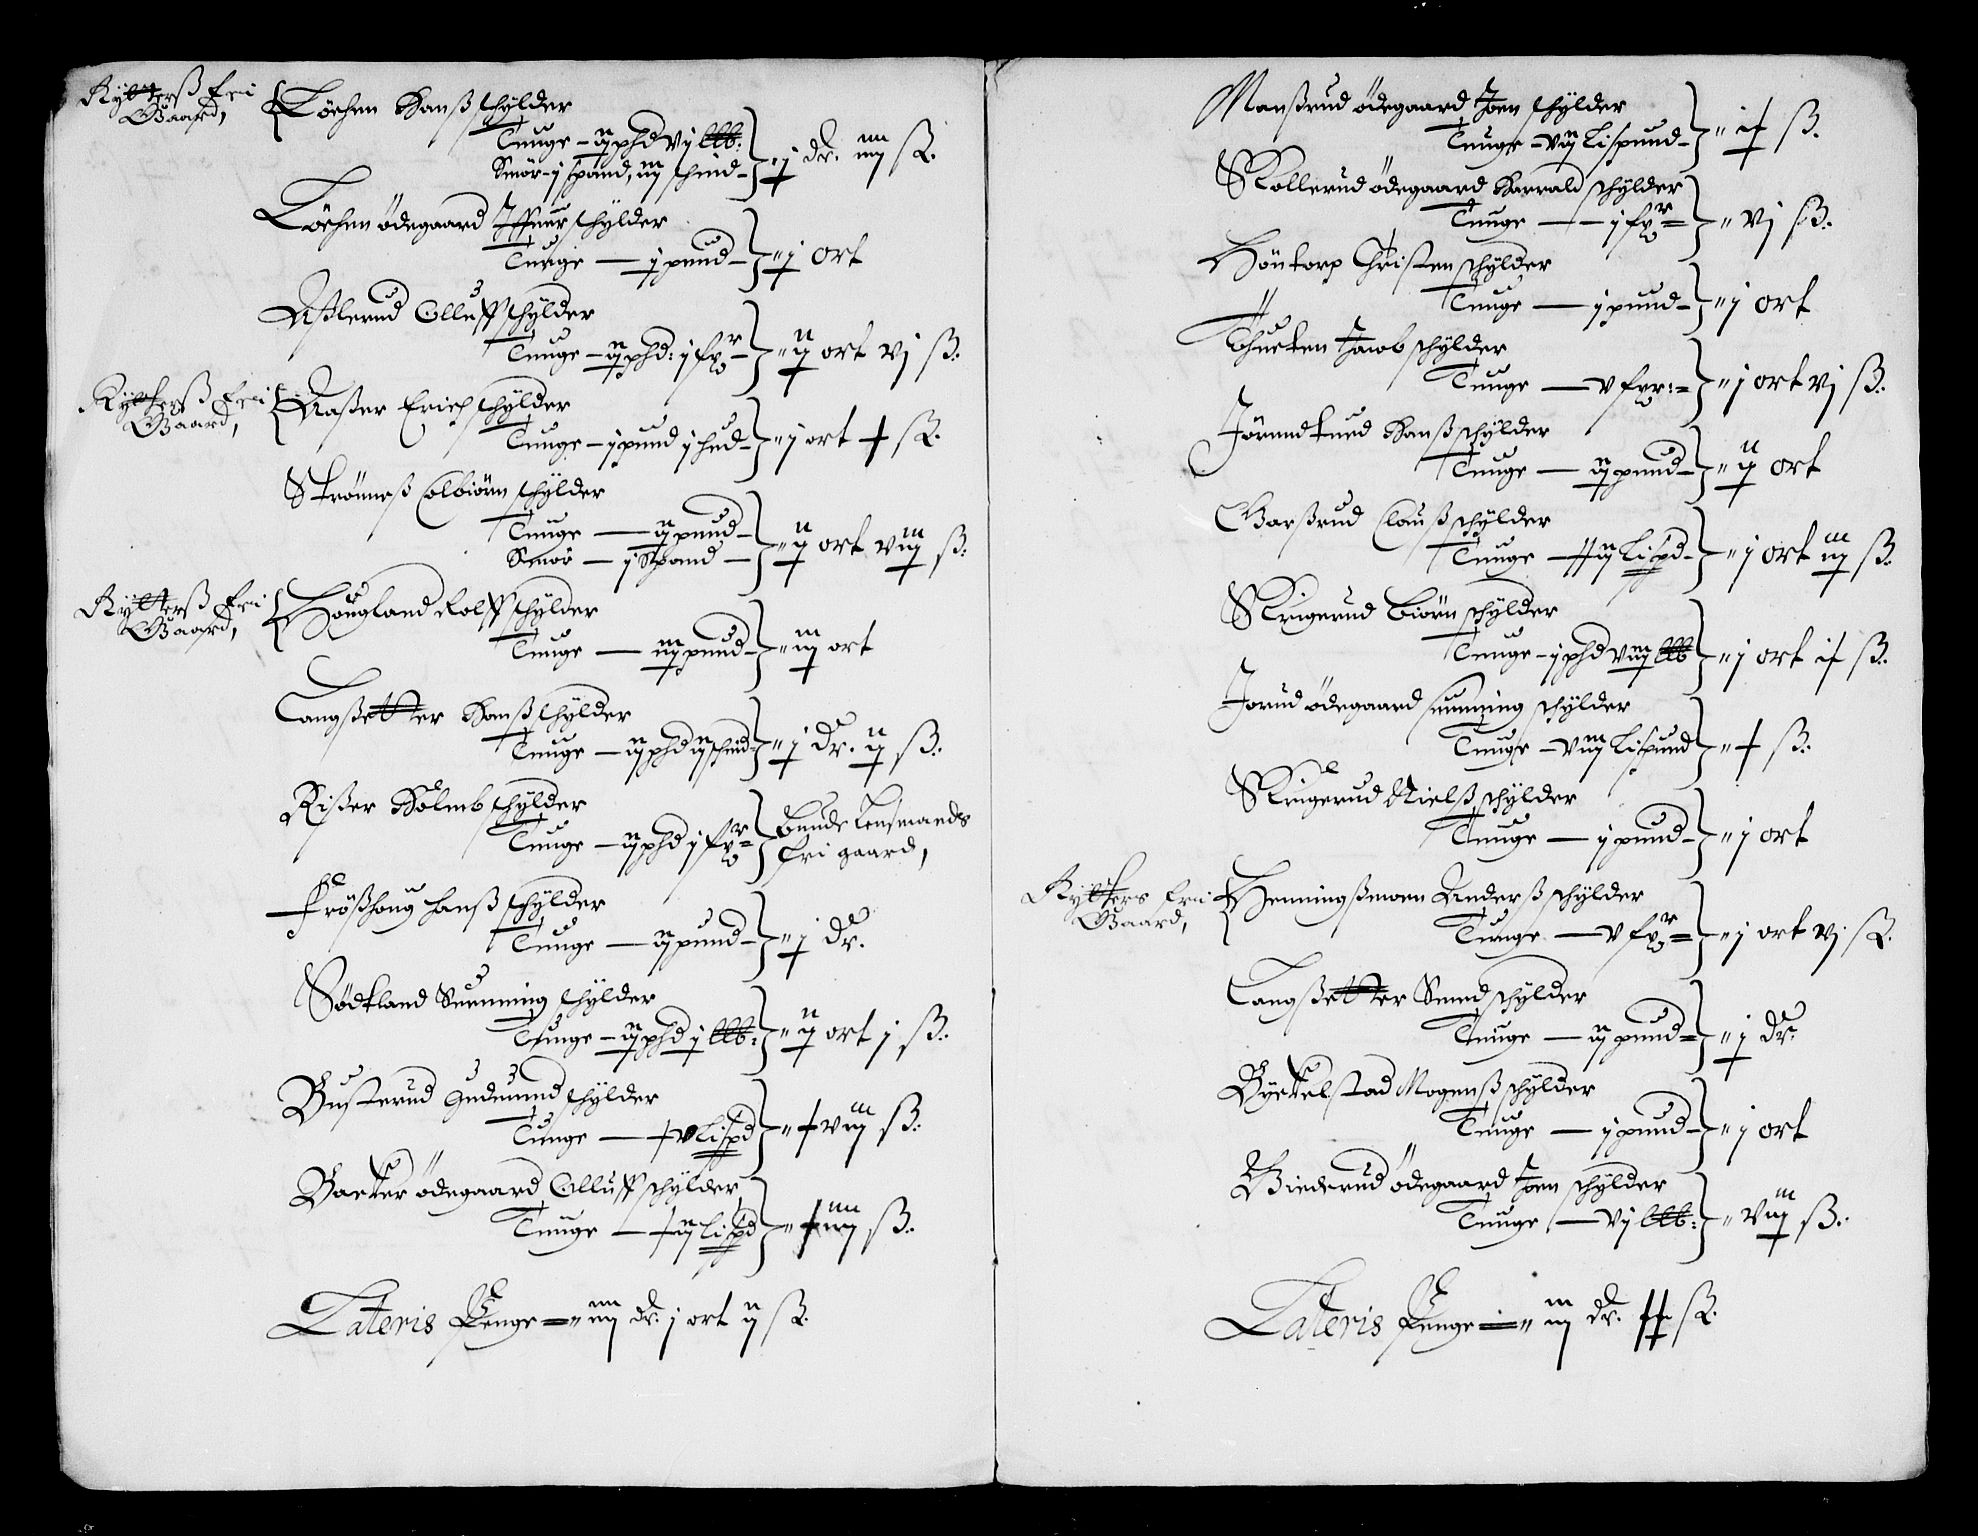 Rytterß frii
Gaard,
Löchen Hanß schylder
Tunge – ij phd vj lb:
Smör – j spand, iij schind – j dr. iiij ß.
Löchen ödegaard Iffuer schylder
Tunge — j pund – j ort
Aßlerud Olluff schylder
Tunge – ij phd: j fxr – ij ort vj ß.
Rytterß frii
Gaard,
Aaßer Erich schylder
Tunge – j pund j hud – j ort x ß.
Strönneß Colbiörn schylder
Tunge — ij pund –
Smör — j Spand — ij ort viij ß.
Rytterß frii
Gaard,
Hougland Rolff schylder
Tunge — iij pund – iij ort
Langßetter Hanß schylder
Tunge – ij phd ij schind – j dr. ij ß.
Rißer Holmb schylder
Tunge – ij phd j fxr Bunde Lensmands
fri gaard,
Frößhoug Hanß schylder
Tunge — ij pund – j dr.
Södtland Suenning schylder
Tunge – ij phd j lb: ij ort j ß.
Busterud Gudmund schylder
Tunge — xv Lispd xviij ß.
Backer ödegaard Olluff schylder
Tunge — xij Lispd xiiij ß.
Lateris Penge – iiij dr. j ort ij ß.
Manßrud ödegaard Joen schylder
Tunge – viij Lispund – ix ß.
Skollerud ödegaard Harrald schylder
Tunge — j fxr vj ß.
Höntorp Christen schylder
Tunge — j pund – j ort
Thueten Jacob schylder
Tunge — v fxr: j ort vj ß.
Jörundtued Hanß schylder
Tunge — ij pund – ij ort
Garßrud Clauß schylder
Tunge — xxij Lispd – j ort iij ß.
Skrigerud Biörn schylder
Tunge – j phd viij lb j ort ix ß.
Jorud ödegaard Suenning schylder
Tunge – viij Lispund x ß.
Skrigerud Nielß schylder
Tunge — j pund – j ort
Rytters frii
Gaard,
Henningßmoen Anderß schylder
Tunge — v fxr j ort vj ß.
Langßetter Suend schylder
Tunge — ij pund j dr.
Byckelstad Mogenß schylder
Tunge — j pund – j ort
Biederud ödegaard Joen schylder
Tunge — vj lb: viij ß.
Lateris Penge – iij dr. xx ß.